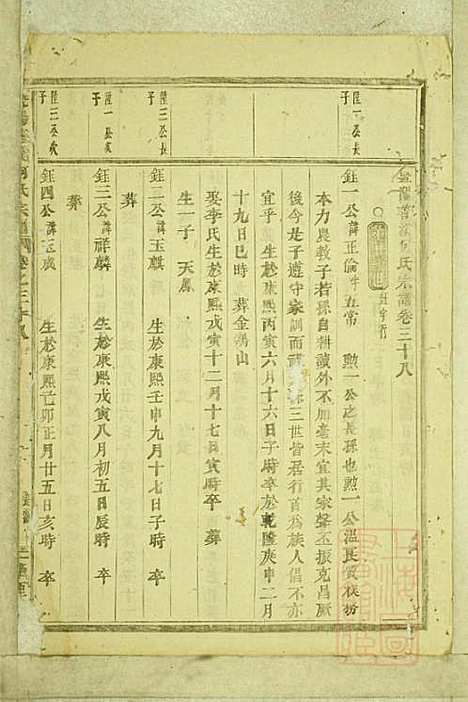 氏宗譜卷三十八
鈺一公諱正倫字五常 勲一公之長孫也勲一公溫良質樸務
本力農教子若孫自耕讀外不加毫末宜其家聲丕振克昌厥
後今是子遵守家訓而 三世皆居行首為族人倡不亦
宜乎 生於康熙丙寅六月十六日子時卒於乾隆庚申二月
十九日巳時 葬金 山
娶李氏生於康熙戊寅十二月十七日寅時卒 葬
生一子 天
鈺二公諱玉麒 生於康熙壬申九月十七日子時 卒
葬
鈺三公諱祥麟 生於康熙戊寅八月初五日辰時 卒
葬
鈺四公諱 廣 生於康熙己卯正月廿五日亥時 卒
陞一公長
子
陞三公長
子
陞一公次
子
陞三公次
子